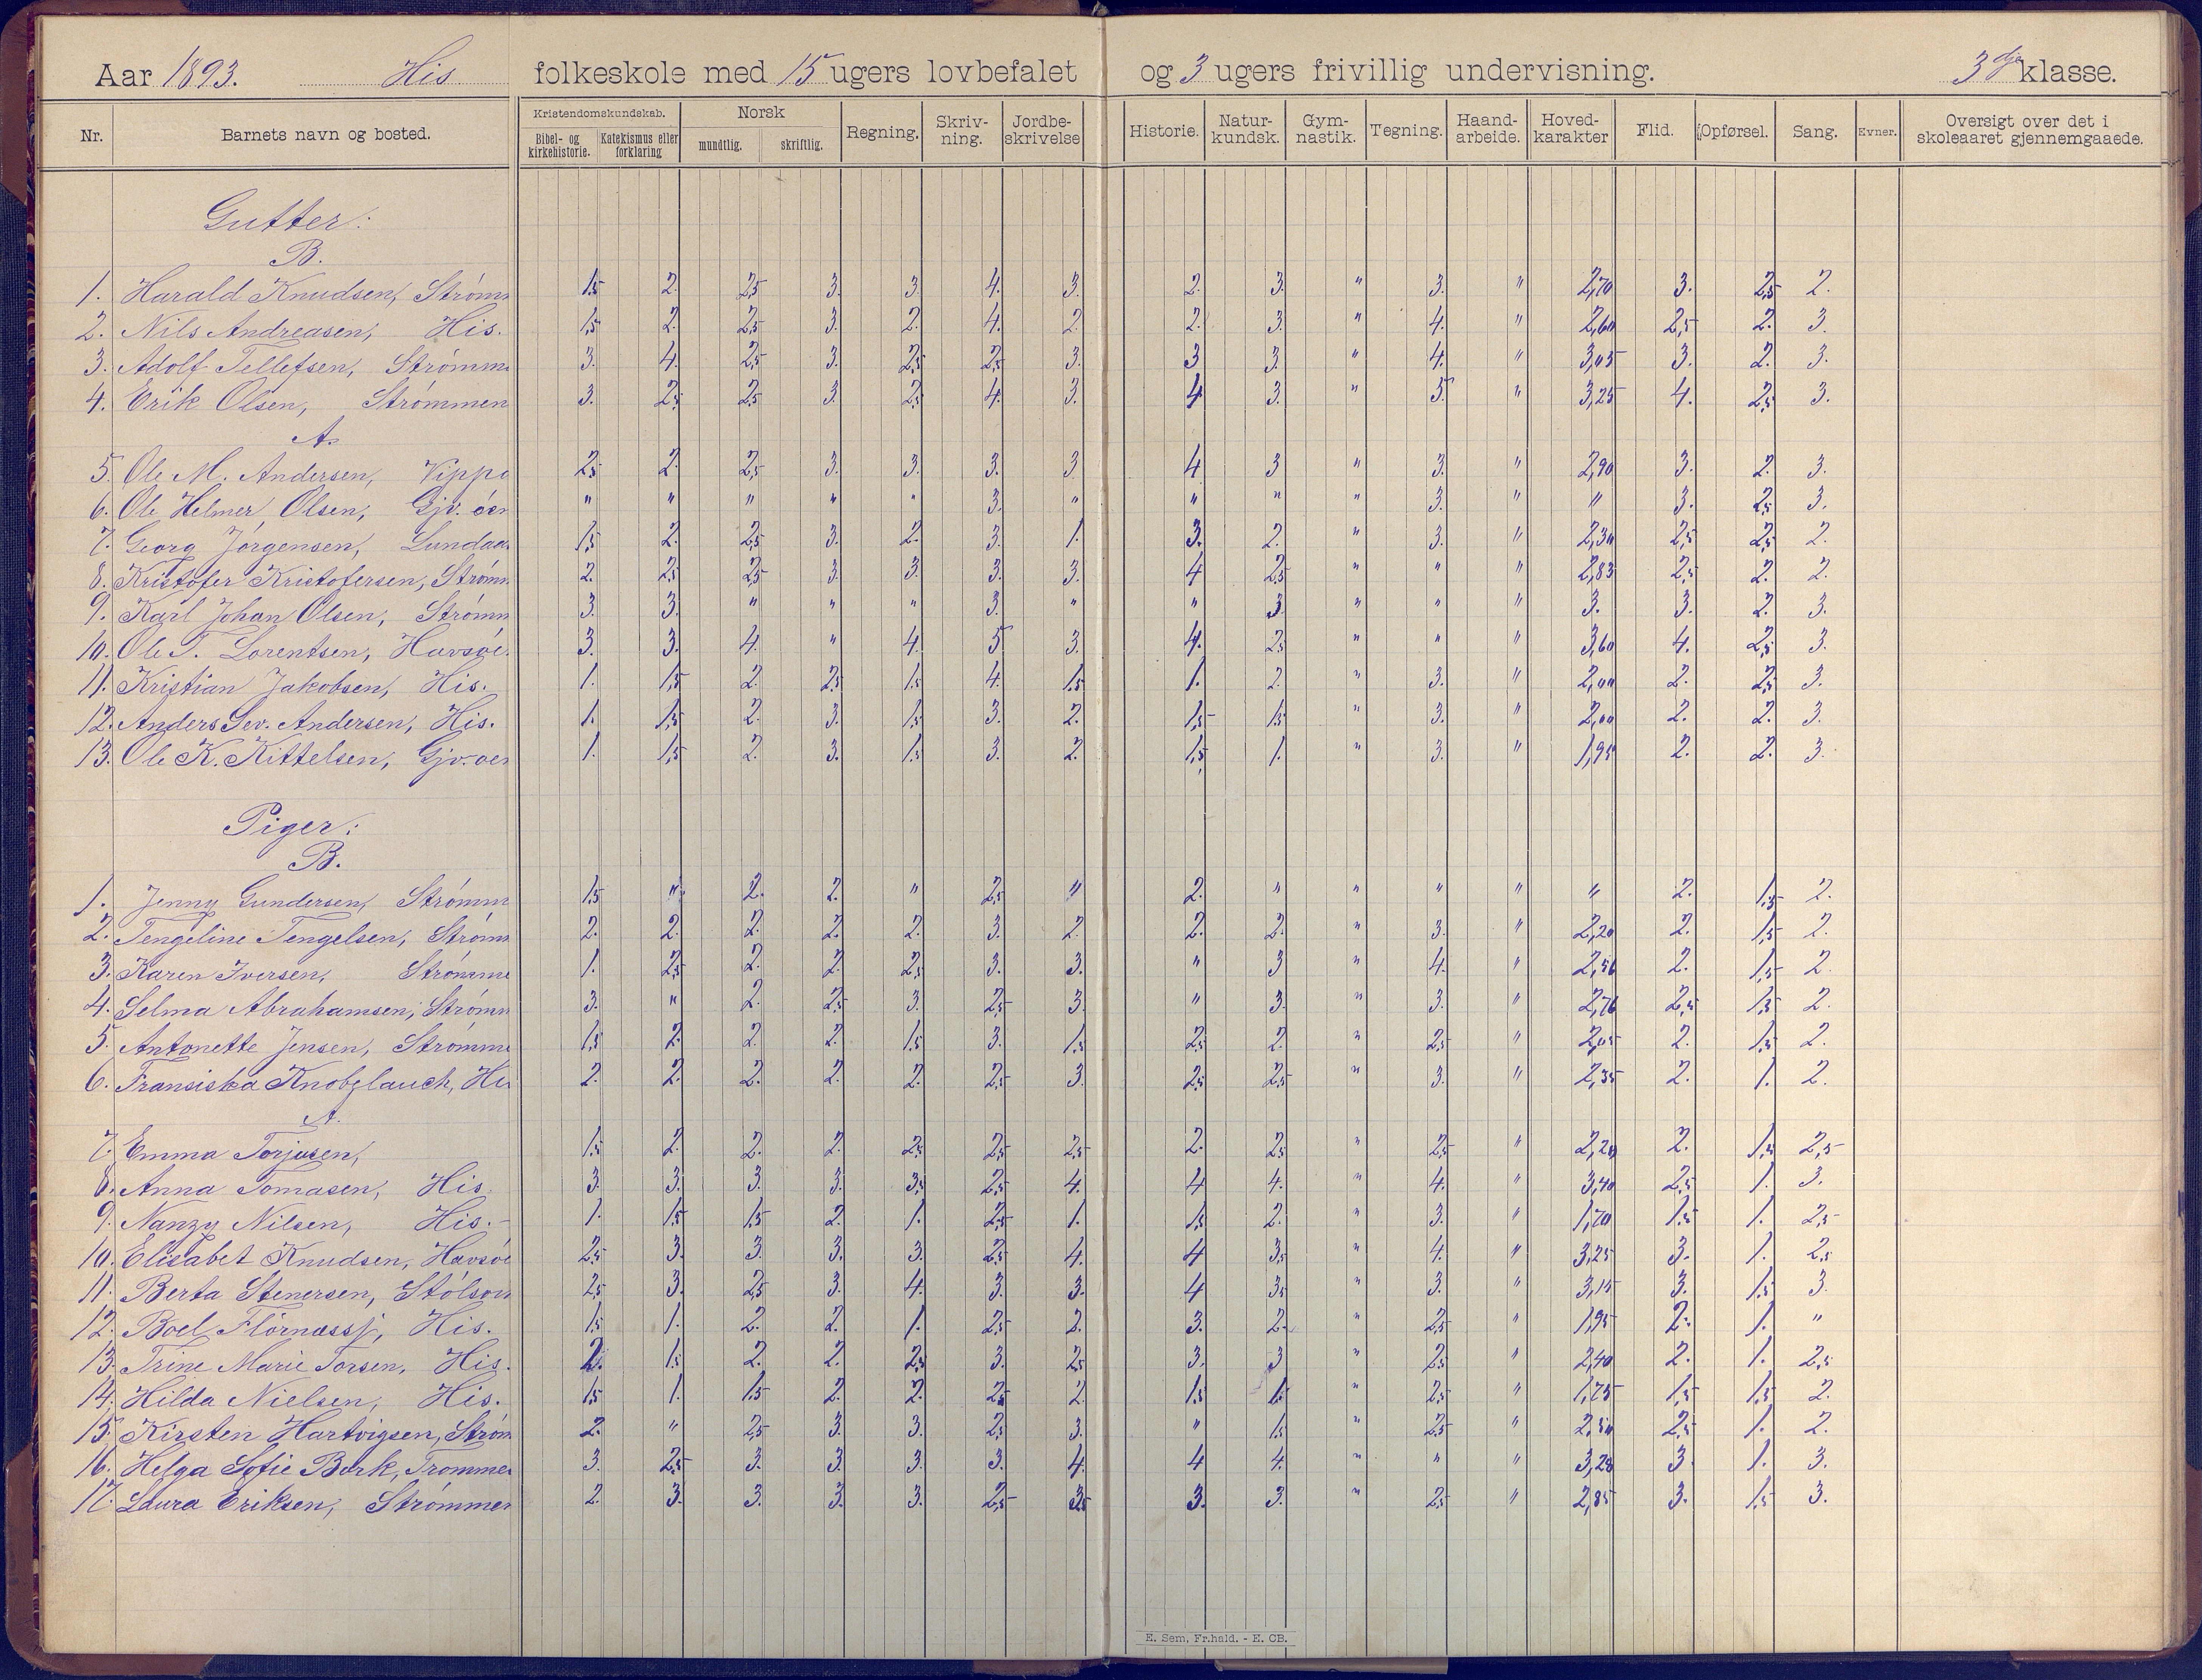 Aar 1893. His folkeskole med 15 ugers lovbefalet og 3 ugers frivillig undervisning. 3dje klasse.
Nr. Barnets navn og bosted. Kristendomskundskab. Bibel- og kirkehistorie. Katekismus eller forklaring Norsk mundtlig. skriftlig. Regning. Skriv-ning. Jordbe-skrivelse Historie. Natur-kundsk. Gym-nastik. Tegning. Haand-arbeide. Hoved-karakter Flid. Opførsel. Sang. Evner. Oversigt over det i skoleaaret gjennemgaaede.
Gutter:
B.
1. Harald Knudsen, Strømm 1,5 2. 2,5 3. 3. 4. 3. 2. 3. " 3. " 2,70 3. 2,5 2.
2. Nils Andreasen, His. 1,5 2. 2,5 3. 2. 4. 2. 2. 3. " 4. " 2,60 2,5 2. 3.
3. Adolf Tellefsen, Strømm 3. 4. 2,5 3. 2,5 2,5 3. 3 3. " 4. " 3,05 3. 2. 3.
4. Erik Olsen, Strømmen 3. 2,5 2,5 3. 2,5 4. 3. 4 3. " 5. " 3,25 4. 2,5 3.
A.
5. Ole M. Andersen, Vippa 2,5 2. 2,5 3. 3. 3. 3 4 3 " 3. " 2,90 3. 2. 3.
6. Ole Helmer Olsen, Gjv. øen " " " " " 3. " " " " 3. " " 3. 2,5 3.
7. Georg Jørgensen, Lundaa 1,5 2. 2,5 3. 2. 3. 1. 3. 2. " 3. " 2,30 2,5 2,5 2.
8. Kristofer Kristofersen, Strømm 2. 2,5 2,5 3. 3. 3. 3. 4 2,5 " " " 2,83 2,5 2. 2.
9. Karl Johan Olsen, Strømm 3. 3. " " " 3. " " 3. " " " 3. 3. 2. 3.
10. Ole T. Lorentsen, Havsøe. 3. 3. 4. " 4. 5 3. 4. 2,5 " " " 3,60 4. 2,5 3.
11. Kristian Jakobsen, His. 1. 1,5 2. 2,5 1,5 4. 1,5 1. 2. " 3. " 2,00 2. 2,5 3.
12. Anders Sev. Andersen, His. 1. 1,5 2. 3. 1,5 3. 2. 1,5 1,5 " 3. " 2,00 2. 2. 3.
13. Ole K. Kittelsen, Gjv. øen 1. 1,5 2. 3. 1,5 3. 2. 1,5 1. " 3. " 1,95 2. 2. 3.
Piger:
B.
1. Jenny Gundersen, Strømm 1,5 " 2. 2. " 2,5 " 2. " " " " " 2. 1,5 2.
2. Tengeline Tengelsen, Strømm 2. 2. 2. 2. 2. 3. 2. 2. 2. " 3. " 2,20 2. 1,5 2.
3. Karen Iversen, Strømme 1. 2,5 2. 2. 2,5 3. 3. " 3 " 4. " 2,56 2. 1,5 2.
4. Selma Abrahamsen, Strømm 3. " 2. 2,5 3. 2,5 3. " 3. " 3. " 2,76 2,5 1,5 2.
5. Antonette Jensen, Strømme 1,5 2. 2. 2. 1,5 3. 1,5 2,5 2. " 2,5 " 2,05 2. 1,5 2.
6. Fransiska Knobelauch, Hi 2. 2. 2. 2. 2. 2,5 3. 2,5 2,5 " 3. " 2,35 2. 1. 2.
A.
7. Emma Torjusen, 1,5 2. 2. 2. 2,5 2,5 2,5 2. 2,5 " 2,5 " 2,20 2. 1,5 2,5
8. Anna Tomasen, His. 3. 3. 3. 3. 3,5 2,5 4. 4 4. " 4. " 3,40 2,5 1. 3.
9. Nanzy Nilsen, His. 1. 1,5 1,5 2. 1. 2,5 1. 1,5 2. " 3. " 1,70 1,5 1. 2,5
10. Elisabet Knudsen, Havsøe 2,5 3. 3. 3. 3. 2,5 4. 4 3,5 " 4. " 3,25 3. 1. 2,5
11. Berta Stenersen, Stølsvi 2,5 3. 2,5 3. 4. 3. 3. 4 3,5 " 3. " 3,15 3. 1,5 3.
12. Boel Flørnæssj, His. 1,5 1. 2. 2. 1. 2,5 2. 3. 2. " 2,5 " 1,95 2. 1. "
13. Trine Marie Torsen, His. 2. 1,5 2. 2. 2,5 3. 2,5 3. 3 " 2,5 " 2,40 2. 1. 2,5
14. Hilda Nielsen, His. 1,5 1. 1,5 2. 2. 2,5 2. 1,5 1. " 2,5 " 1,75 1,5 1,5 2.
15. Kirsten Hartvigsen, Strøm 2. " 2,5 3. 3. 2,5 3. " 1,5 " 2,5 " 2,50 2,5 1. 2.
16. Helga Sofie Bork, Trommer 3. 2,5 3. 3. 3. 3. 4. 4 4. " " " 3,28 3. 1. 3.
17. Laura Eriksen, Strømmen 2. 3. 3. 3. 3. 2,5 3,5 3. 3. " 2,5 " 2,85 3. 1,5 3.
E. Sem, Fr.hald. - E. CB.